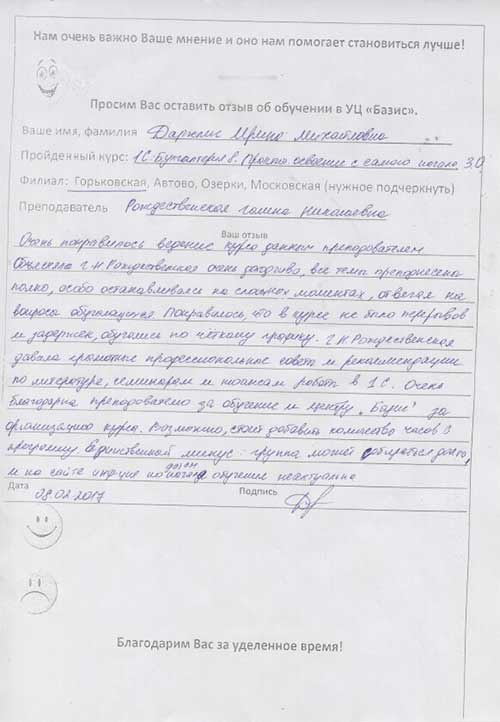 Нам очень важно Ваше мнение и оно нам помогает становиться лучше!
Просим Вас оставить отзыв об обучении в УЦ «Базис».
Ваше имя, фамилия Ирина Михайловна
Пройденный курс: 1С:Бухгалтерия 8. Простое освоение с самого начала 3.0
Филиал: Горьковская, Автово, Озерки, Московская (нужное подчеркнуть)
Преподаватель Рождественская Галина Николаевна
Ваш отзыв
Очень понравилось ведение курса данным преподователем
Объясняла Г.Н Рождественская очень доходчиво, все темы преподнесены
полно, особо останавливался на сложных моментах, отвечая на
вопросы обучающихся Понравилось, что в курсе не было перерывов
и задержек, обучались по чёткому графику. Г.Н Рождественская
давала грамотные профессиональные советы и рекомендации
по литературе, семинарам и нюансам работы в 1С. Очень
благодарна преподователю за обучение и центру „Базис" за
организацию курса. Возможно, стоит добавить количество часов в
программу. Единственный минус: группа может собираться долго,
и на сайте по датам обучение неактуальна
Дата 08.02.2017 Подпись
Благодарим Вас за уделенное время!